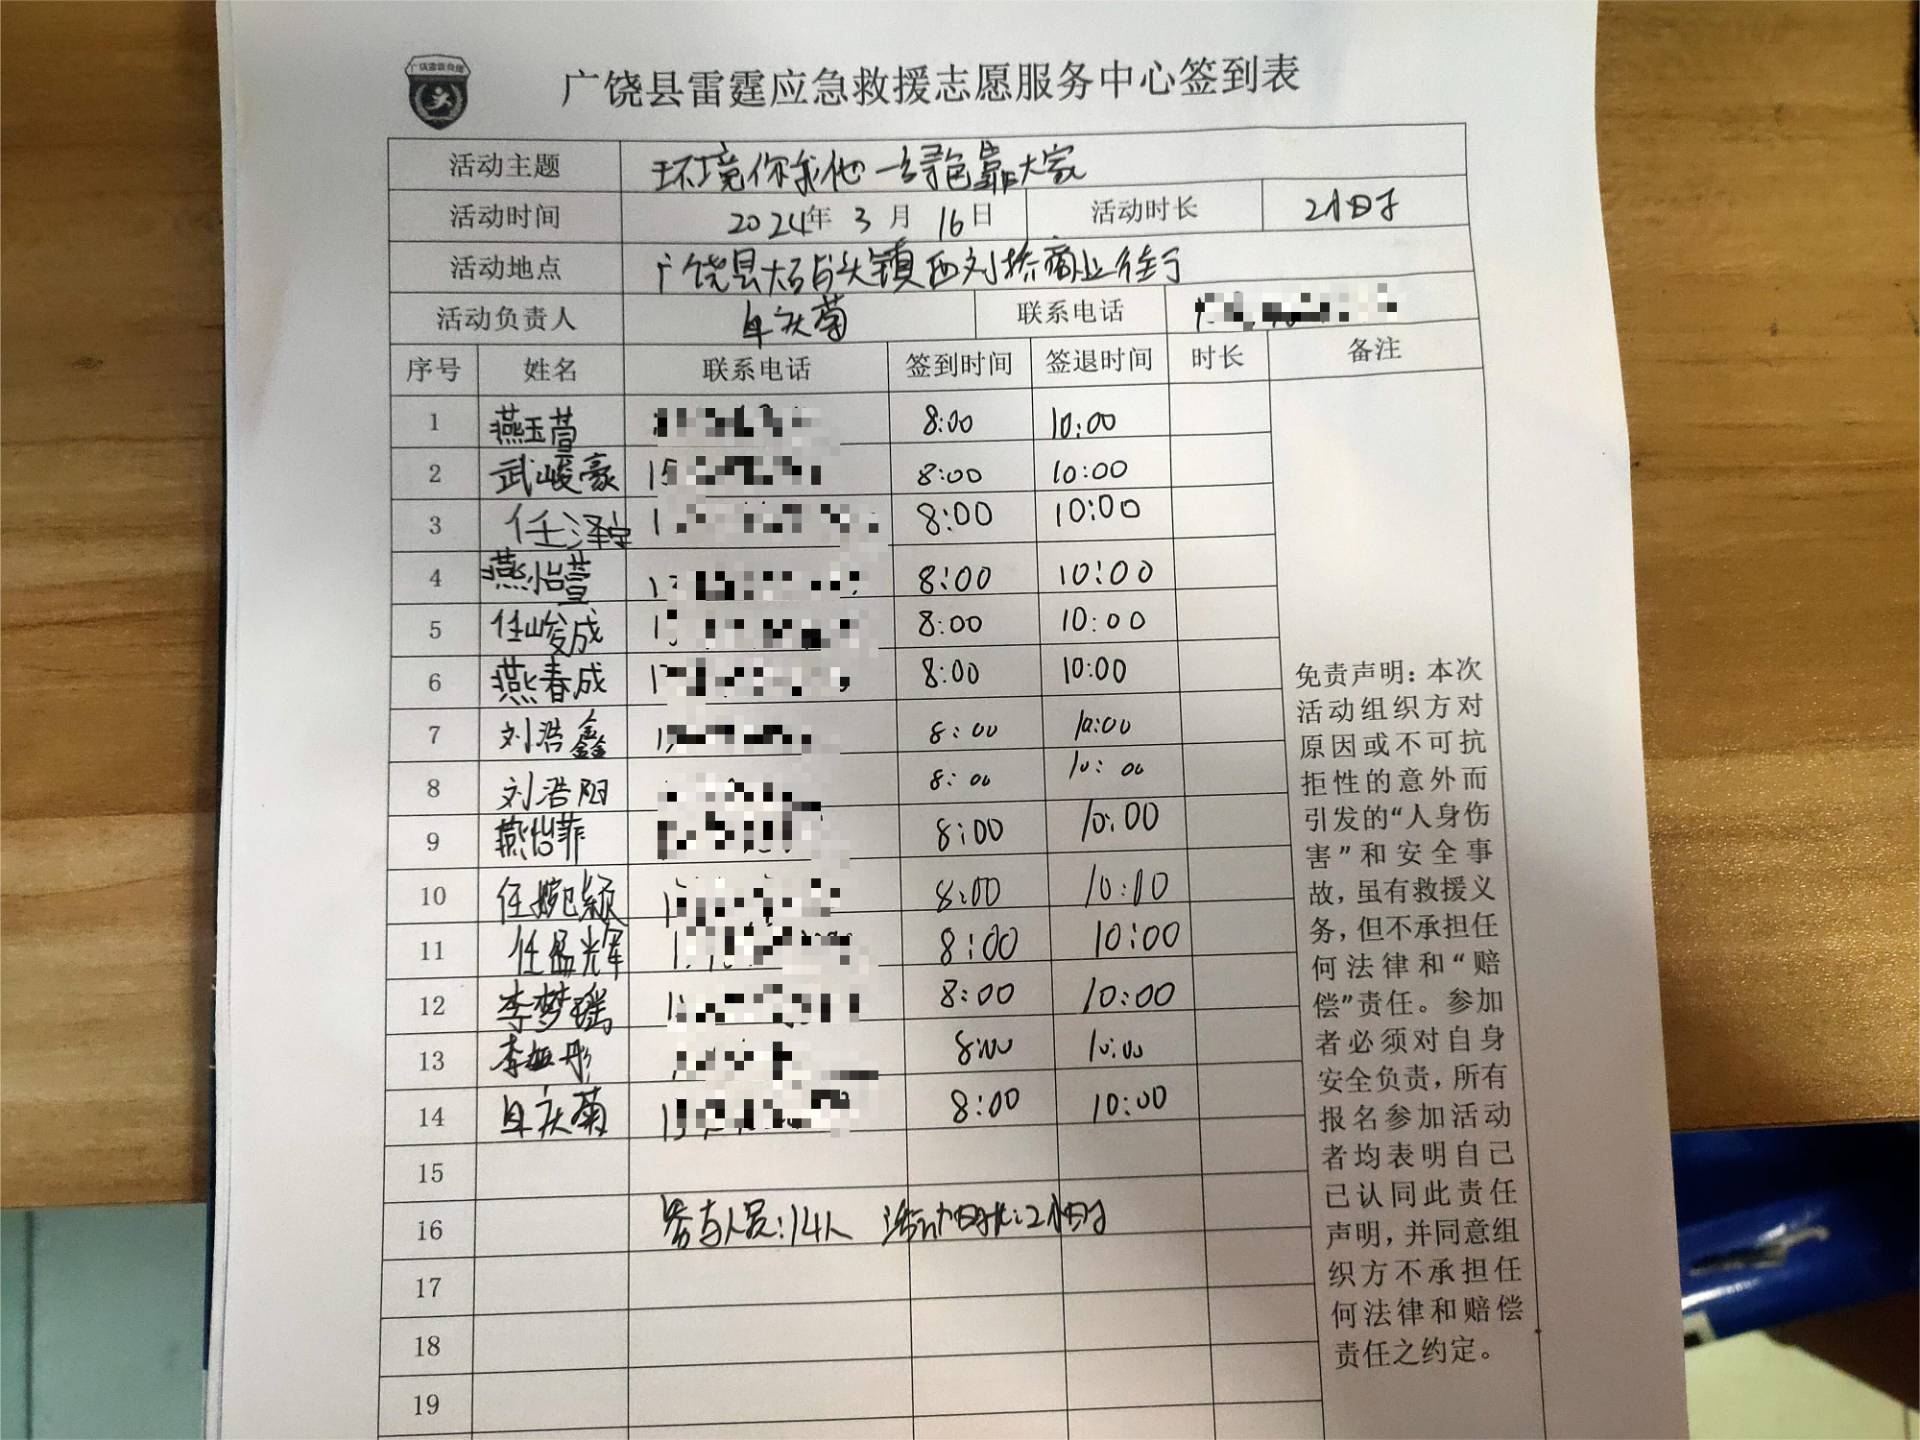 广饶县雷霆应急救援志愿服务中心签到表
活动主题 环境你我他 绿色靠大家
活动时间 2024年 3月 16日 活动时长 2小时
活动地点 广饶县大码头镇西刘桥商业街
活动负责人 联系电话
序号 姓名 联系电话 签到时间 签退时间 时长 备注
1 燕玉萱 8:00 10:00
2 武峻豪 15 8:00 10:00
3 任泽宇 1 8:00 10:00
4 燕怡萱 8:00 10:00
5 任峻成 8:00 10:00
6 燕春成 8:00 10:00
7 刘浩鑫 8:00 10:00
8 刘浩阳 8:00 10:00
9 燕怡菲 8:00 10:00
10 任婉颖 8:00 10:00
11 任孟辉 8:00 10:00
12 李梦瑶 8:00 10:00
13 李 彤 8:00 10:00
14 8:00 10:00
15
16 参与人员:14人 活动时长:2小时
17
18
19
免责声明:本次
活动组织方对
原因或不可抗
拒性的意外而
引发的“人身伤
害”和安全事
故,虽有救援义
务,但不承担任
何法律和“赔
偿”责任。参加
者必须对自身
安全负责,所有
报名参加活动
者均表明自己
己认同此责任
声明,并同意组
织方不承担任
何法律和赔偿
责任之约定。